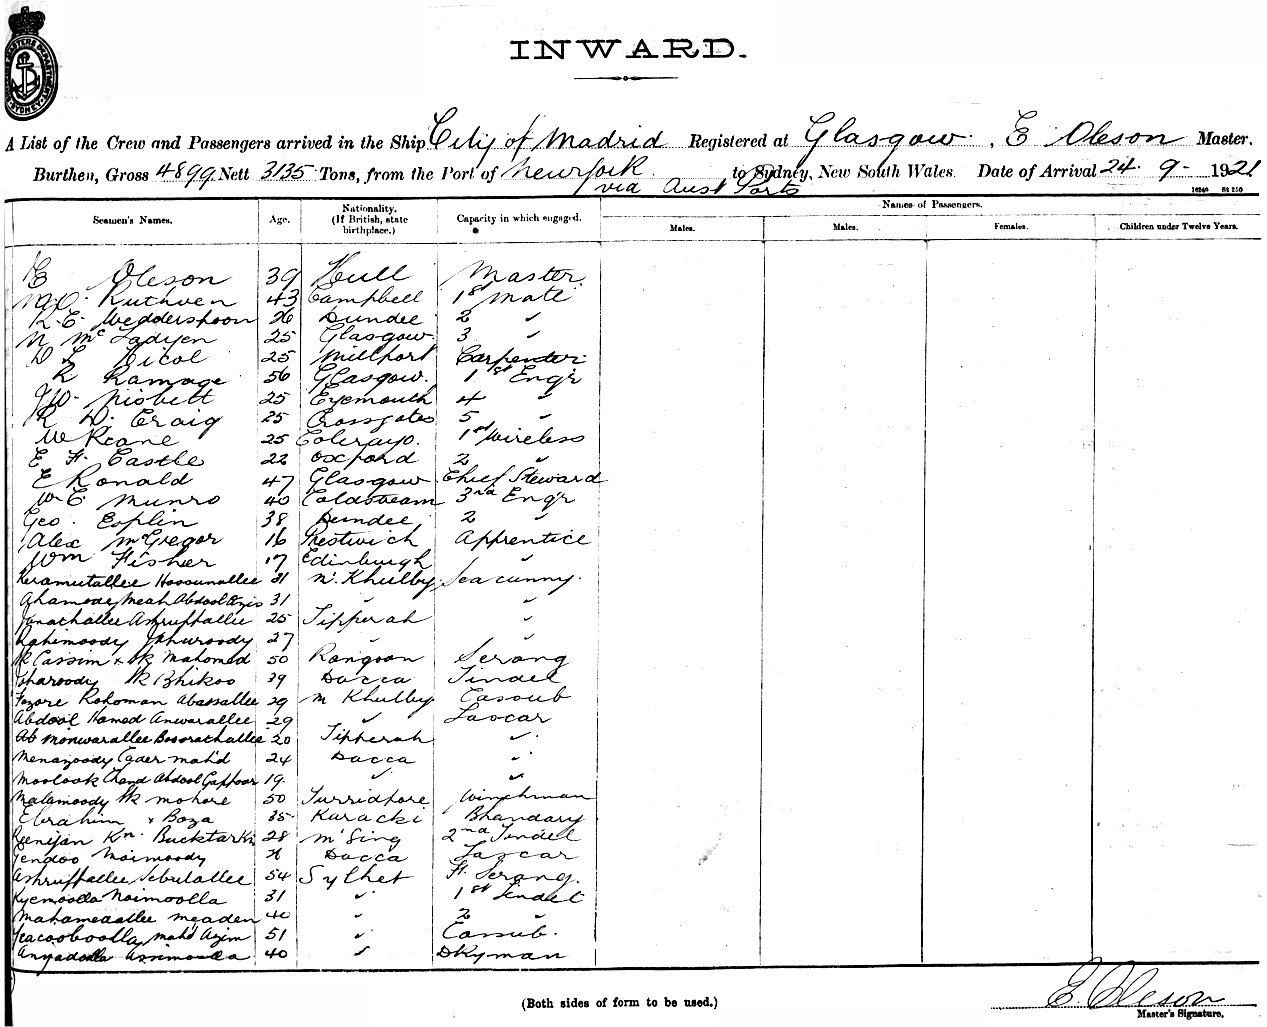 INWARD.
A List of the Crew and Passengers arrived in the Ship City of Madrid Registered at Glasgow, E Oleson Master.
Burthen, Gross 4899 Nett 3135 Tons, from the Port of Newyork via Aust Ports to Sydney, New South Wales. Date of Arrival 24. 9 - 1921
Seamen's Names. Age. Nationality. (If British, state birthplace.) Capacity in which engaged. Names of Passengers.
Males. Males. Females. Children under Twelve Years.
E Oleson 39 Hull Master
Ruthven 43 Campbell 1st Mate
R. E. Wedderspoon 26 Dundee 2 "
N Mc 25 Glasgow. 3 "
D L Nicol 25 Millport Carpenter
R Ramage 56 Glasgow. 1st Engr
J W. Nisbett 25 Eyemouth 4 "
R D. Craig 25 Crossgates 5 "
W Keane 25 1st Wireless
E F. Castle 22 Oxford 2 "
E Ronald 47 Glasgow Chief Steward
W E Munro 40 Coldstream 3rd Engr
Geo. Esplin 38 Dundee 2 "
Alex McGregor 16 Prestwich Apprentice
Wm Fisher 17 Edinburgh "
Keramutallee Hossunallee 31 N. Khulby Seacunny.
Ahamody Meah Abdool Azis 31 " "
Junathallee Ashruffallee 25 Tipperah "
Rahimoody 27 " "
Sk Cassim + Sk Mahomed 50 Rangoon Serang
Sk Bhikoo 39 Dacca Tindel
Fozore Rohoman Abassallee 29 M Khulby Cassub
Abdool Hamed Anwarallee 29 " Lascar
Ab Monwarallee Bosorathallee 20 Tipperah "
Menazoody Cader Mahd 24 Dacca "
Moolook Chand Abdool Gaffoor 19. " "
Malamoody Sk Mohore 50 Furridpore Winchman
Ebrahim + Boza 35 Karacki Bhandary
Zenijan Kn. Bucktar Kn 28 M'Sing 2nd Tindel
Jendoo Moimoody Dacca Lascar
Ashruffallee Sebulallee 54 Sylhet F. Serang.
Kyemoolla Noimoolla 31 " 1st Tindel
Mahamedallee Meaden 40 " 2 "
Yeacooboolla Mahd Azim 51 " Cassub.
Assimoolla 40 " Dkyman
(Both sides of form to be used.)
E. Oleson
Master's Signature.